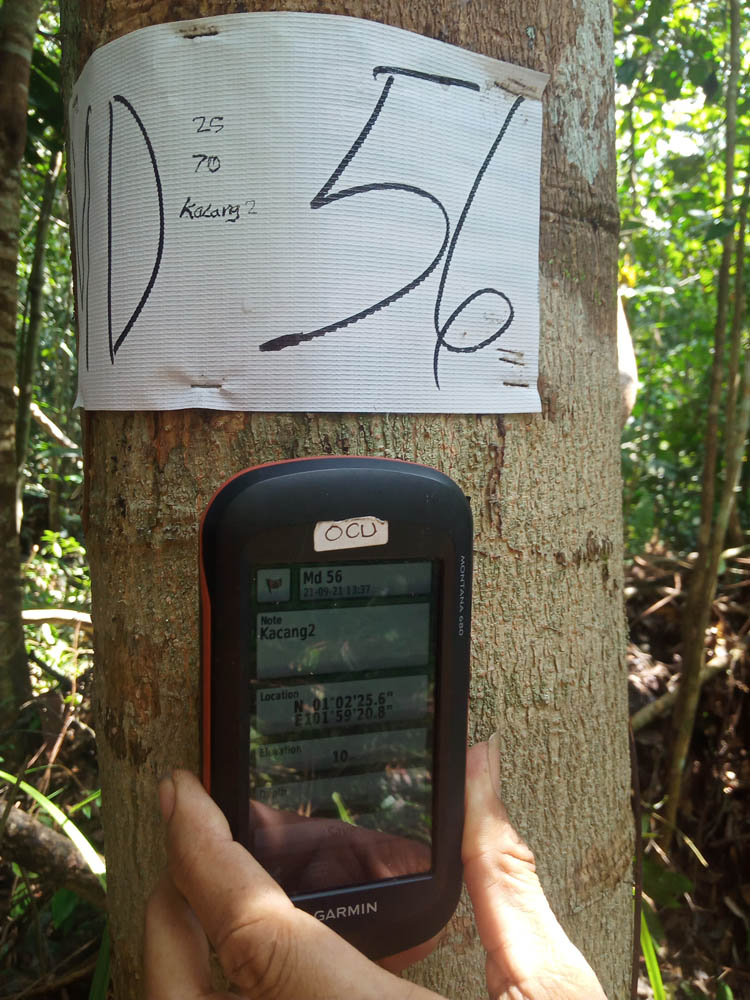 MD 56
25
70
Kacang 2
OCU
MONTANA 680
Md 56
21-09-21 13:37
Note
Kacang2
Location
N 01°02'25.6"
E101°59'20.8"
Elevation
10
Depth
GARMIN